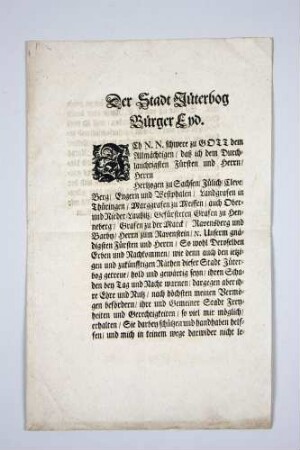 Der Stadt Jüterbog
Bürger Eyd.
ICh N. N. schwere zu GOTT dem
Allmächtigen / daß ich dem Durch-
lauchtigsten Fürsten und Herrn /
Herrn
Hertzogen zu Sachsen / Jülich / Cleve
Berg / Engern und Westphalen / Landgrafen in
Thüringen / Marggrafen zu Meissen / auch Ober-
und Nieder-Laußitz / Gefürsteten Grafen zu Hen-
neberg / Grafen zu der Marck / Ravensberg und
Barby / Herrn zum Ravenstein / ꝛc. Unserm gnä-
digsten Fürsten und Herrn / So wohl Deroselben
Erben und Nachkommen / wie denn auch den itzi-
gen und zukünfftigen Räthen dieser Stadt Jüter-
bog getreue / hold und gewärtig seyn / ihren Scha-
den bey Tag und Nacht warnen / dargegen aber ih-
re Ehre und Nutz / nach höchsten meinen Vermö-
gen befördern / ihre und Gemeiner Stadt Frey-
heiten und Gerechtigkeiten / so viel mir möglich /
erhalten / Sie darbey schützen und handhaben helf-
fen / und mich in keinem wege darwider nicht le-